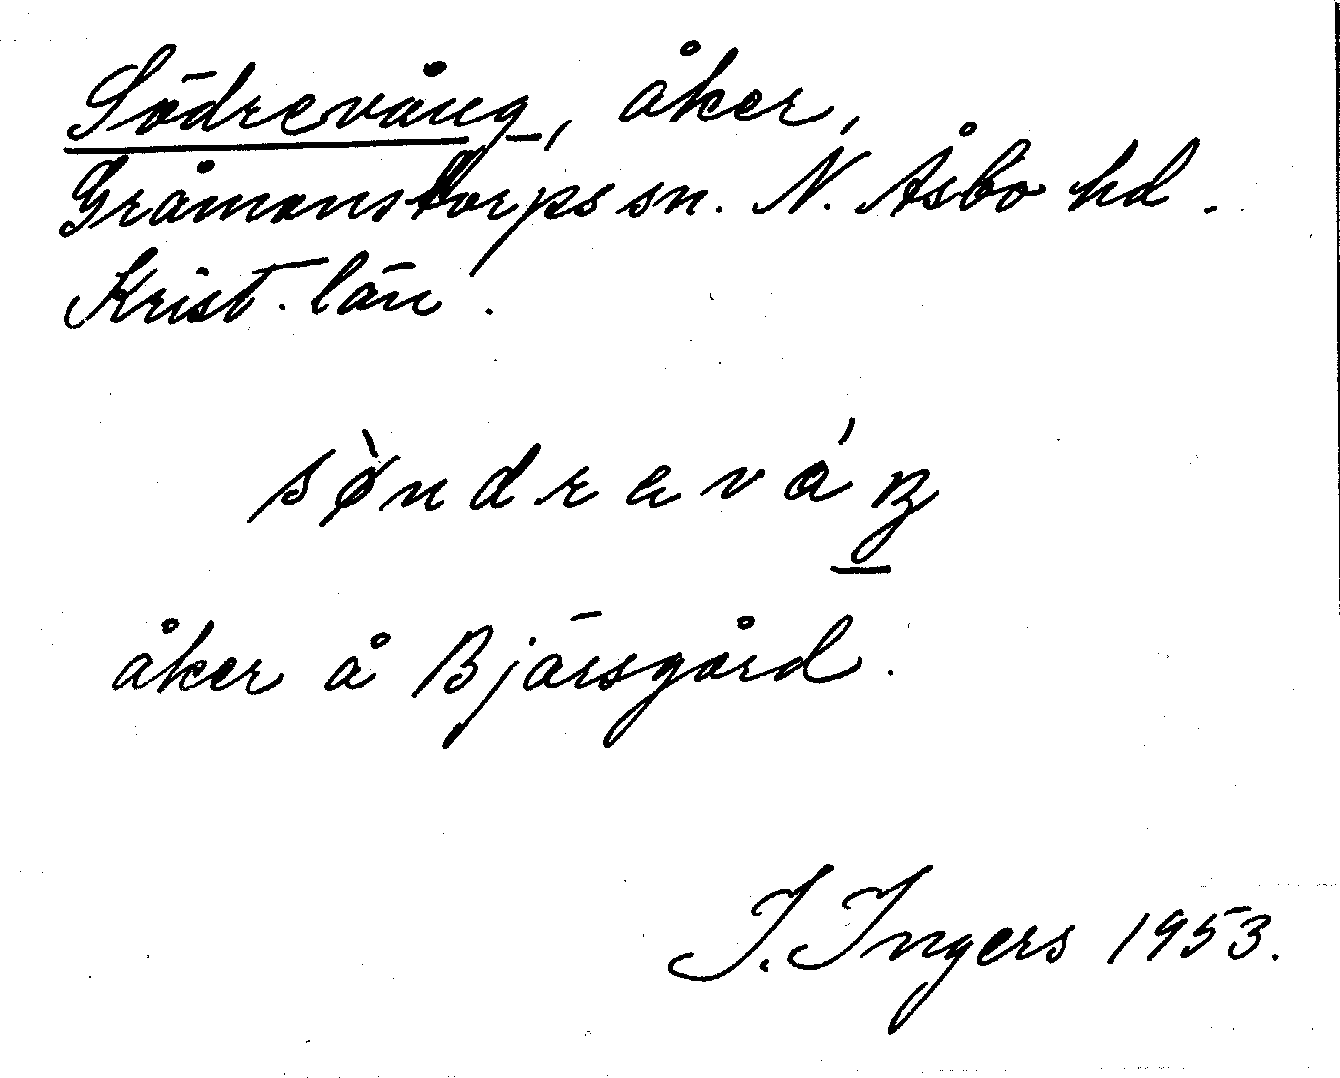 Södrevång, åker,
Gråmanstorps sn. N. Åsbo hd.
Krist. län.
sø̀ndrevåŋ́
åker å Bjärsgård.
I. Ingers 1953.